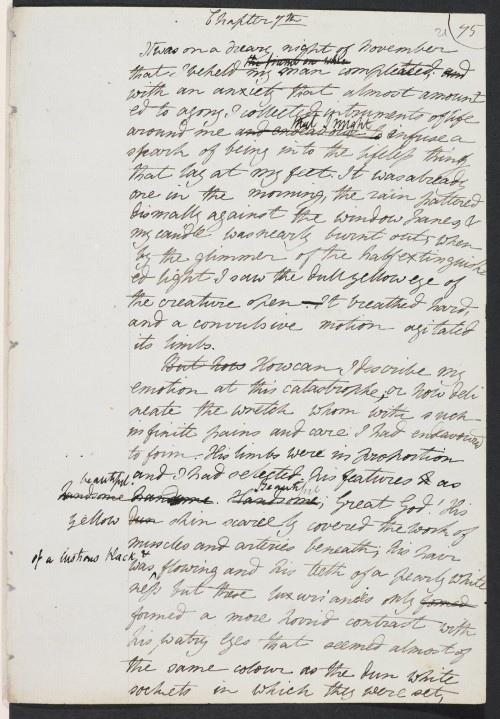 Chapter 7th
21 75
It was on a dreary night of November
the frame on whic
that I beheld my man compleated, and
with an anxiety that almost amount
ed to agony, I collected instruments of life
that I might
around me and endeavour to infuse a
spark of being into the lifeless thing
that lay at my feet. It was already
one in the morning, the rain pattered
dismally against the window panes, &
my candle was nearly burnt out, when
by the glimmer of the half extinguish
ed light I saw the dull yellow eye of
the creature open — It breathed hard,
and a convulsive motion agitated
its limbs.
But how How can I describe my
emotion at this catastrophe, or how deli
neate the wretch whom with such
infinite pains and care I had endeavoured
to form. His limbs were in proportion
and I had selected his features & as
beautiful
handsome handsome. Handsome; Great God. His
Beautiful
yellow dun skin scarcely covered the work of
muscles and arteries beneath; his hair
of a lustrous black, &
was flowing and his teeth of a pearly white
ness but these luxuriances only formed
formed a more horrid contrast with
his watry eyes that seemed almost of
the same colour as the dun white
sockets in which they were set,